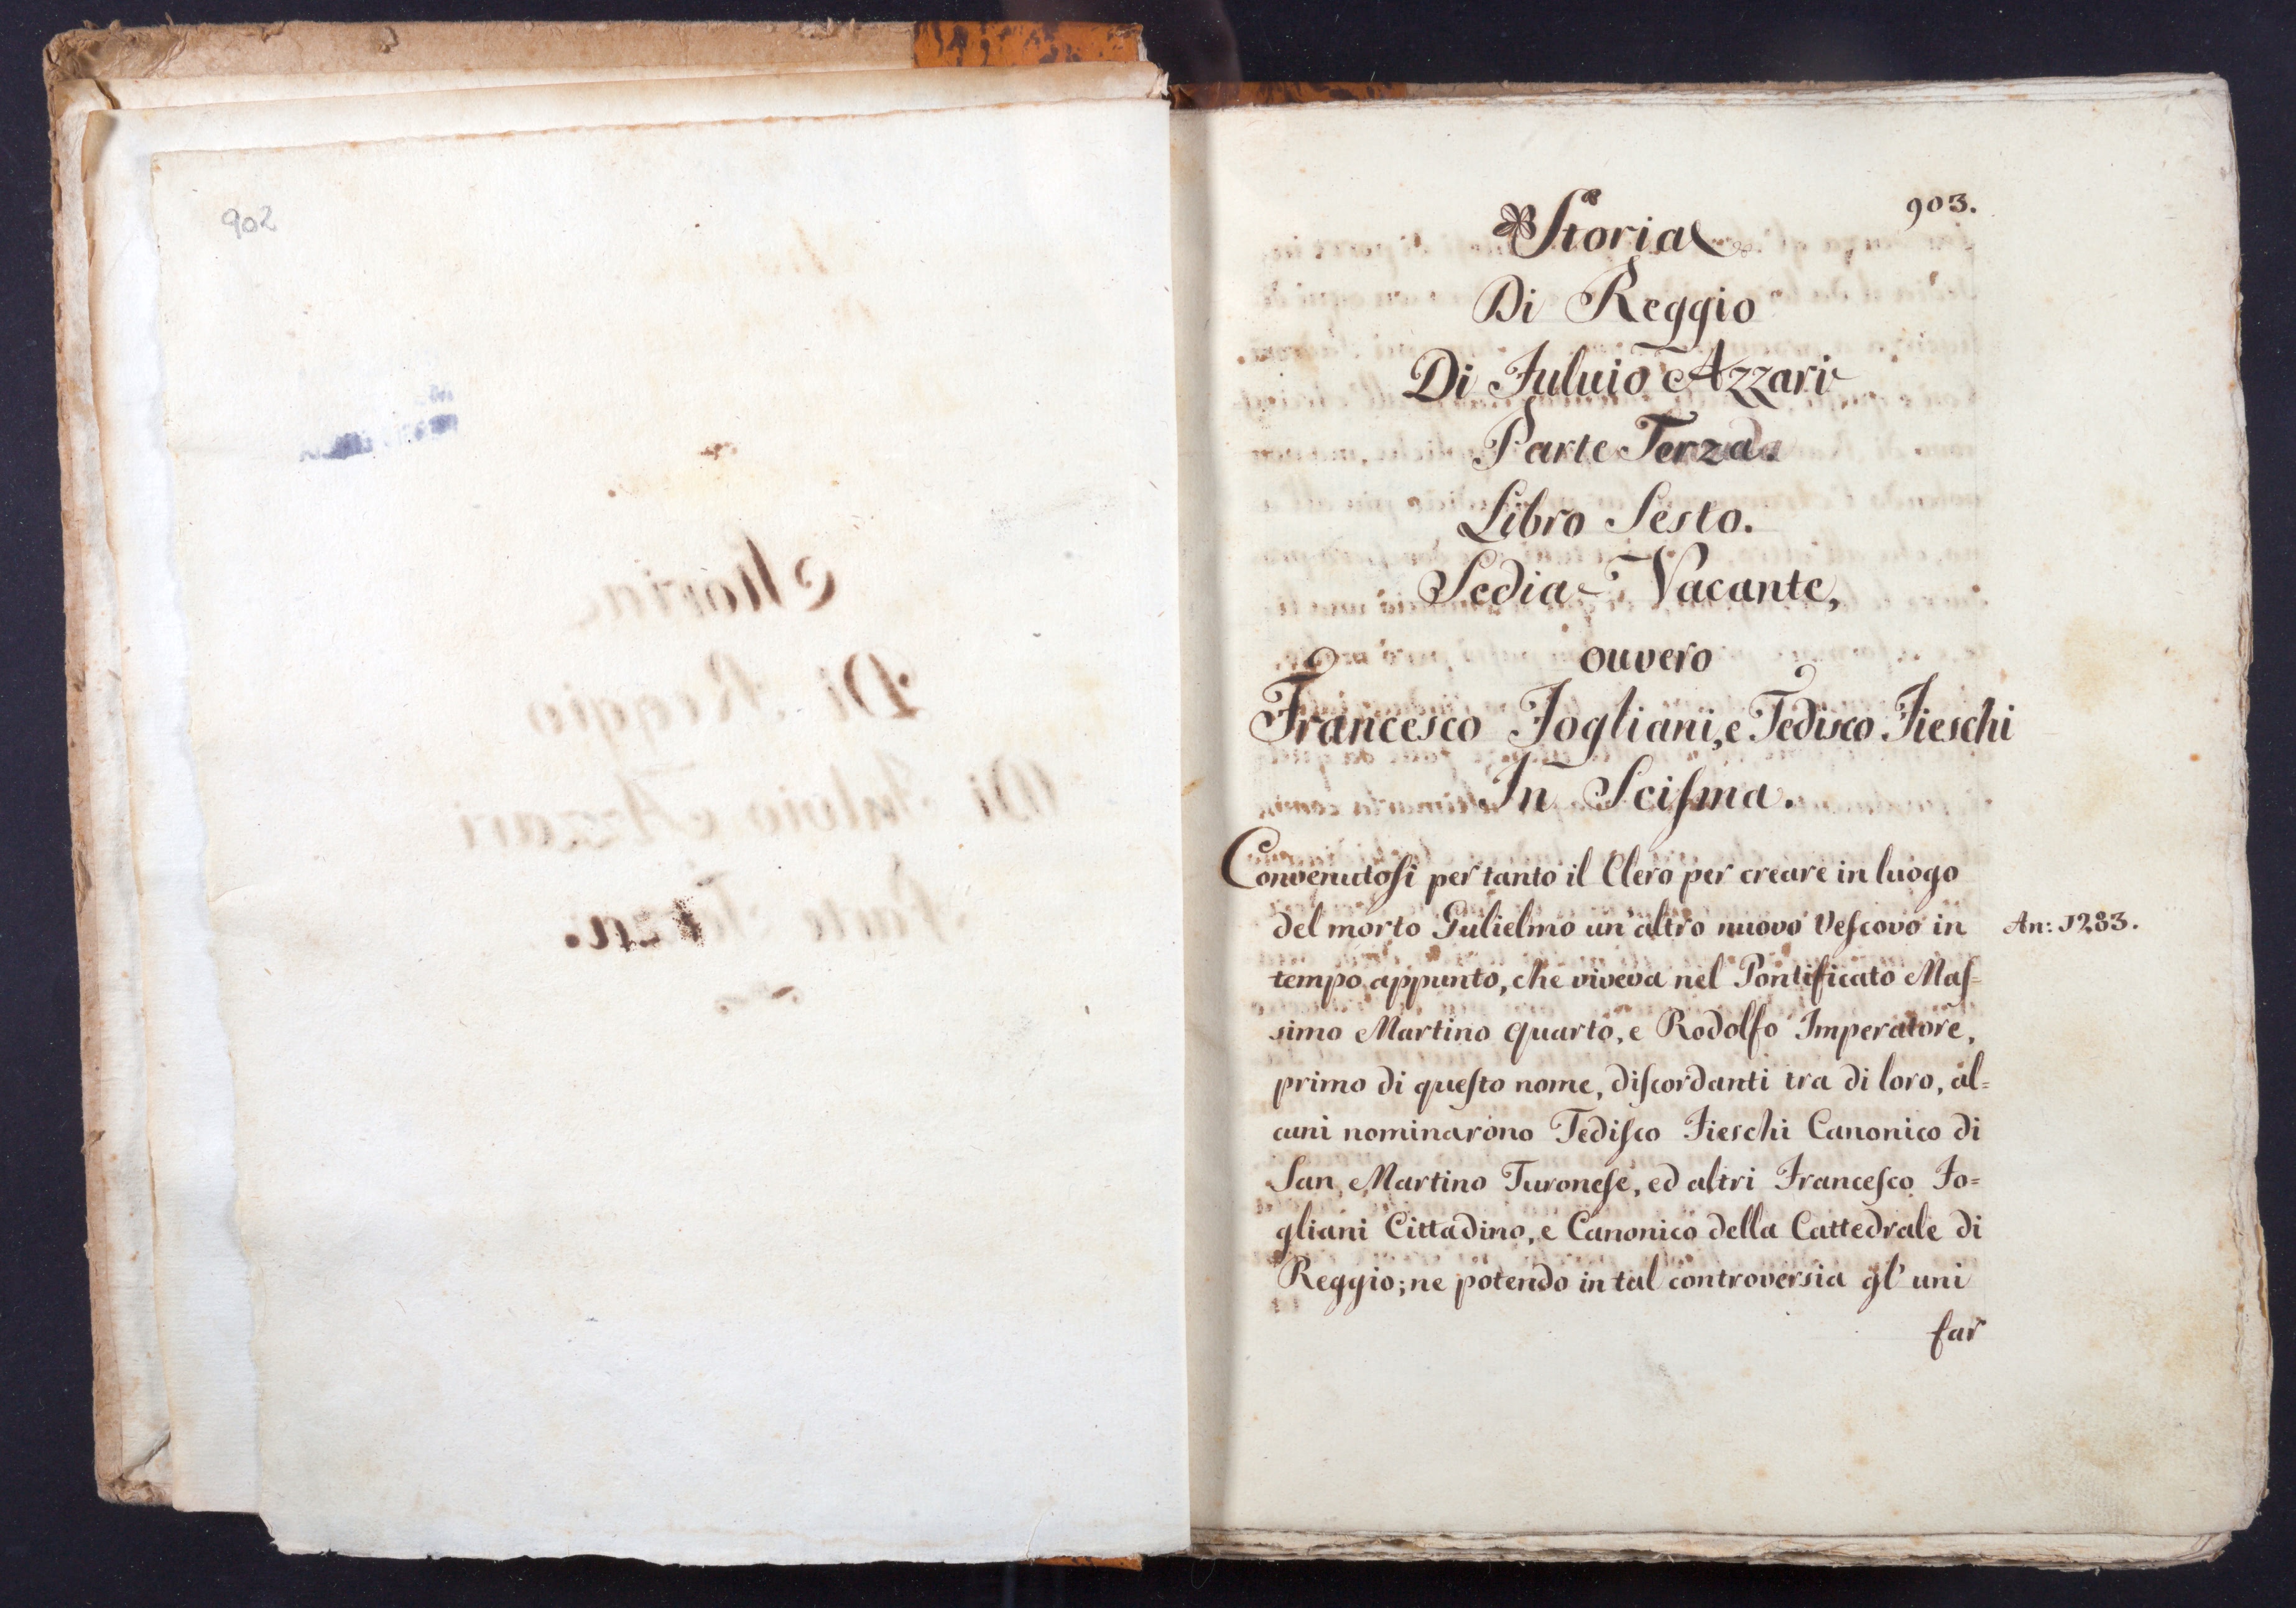 902
903.
Storia
Di Reggio
Di Fuluio Azzari
Parte Terza.
Libro Sesto.
Sedia Vacante,
ouvero
Francesco Fogliani, e Tedisco Fieschi
In Sciſma.
Convenutoſi per tanto il Clero per creare in luogo
del morto Gulielmo un'altro nuovo Veſcovo in
An: 1283.
tempo appunto, che viveva nel Pontificato Maſ-
simo Martino quarto, e Rodolfo Imperatore,
primo di queſto nome, diſcordanti tra di loro, al=
cuni nominarono Tediſco Fieschi Canonico di
San Martino Turoneſe, ed altri Franceſco Fo=
gliani Cittadino, e Canonico della Cattedrale di
Reggio; ne potendo in tal controversia gl' uni
far